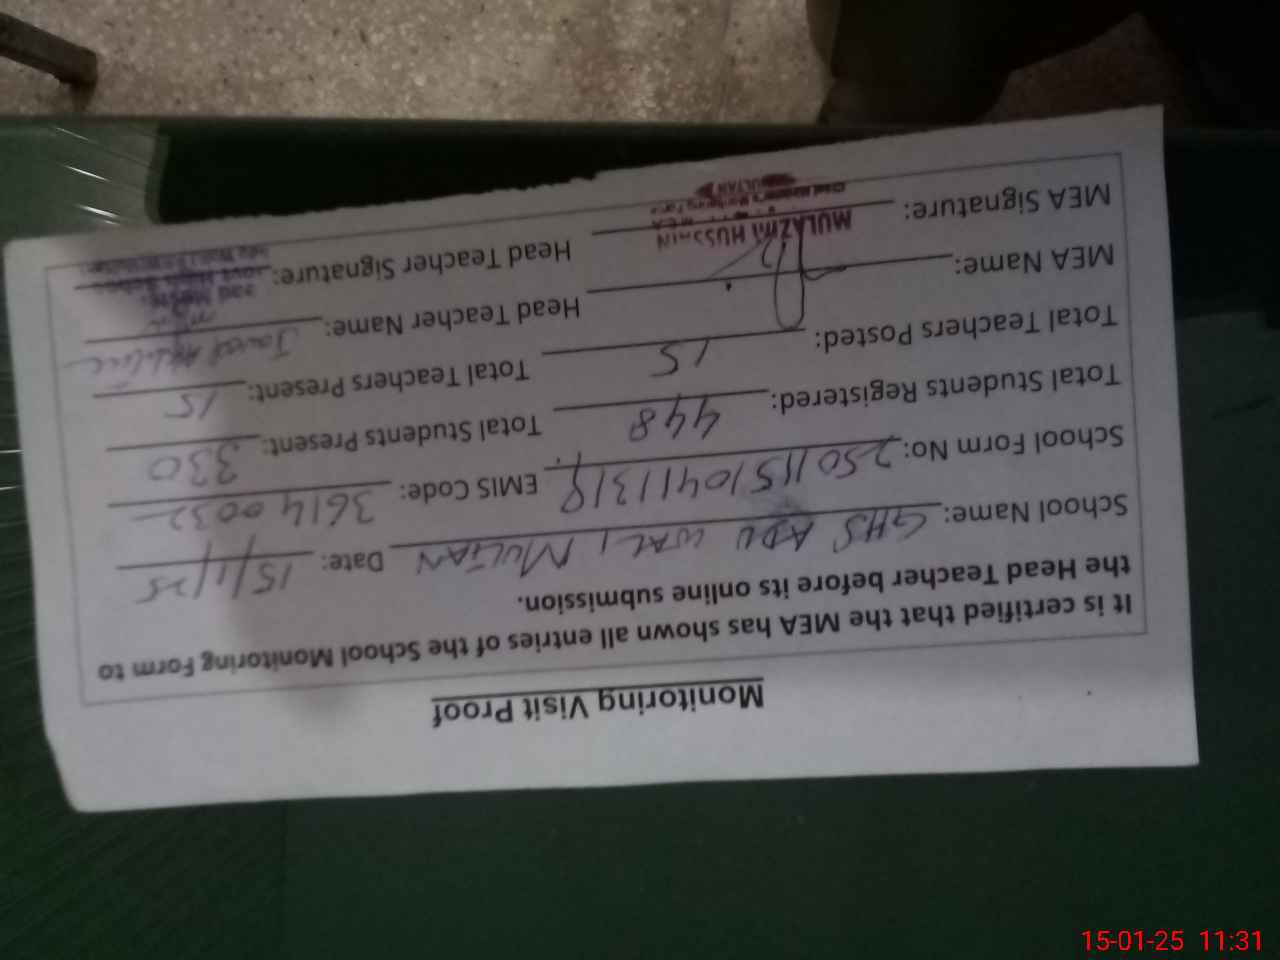 Monitoring Visit Proof
It is certified that the MEA has shown all entries of the School Monitoring Form to
the Head Teacher before its online submission.
School Name: GHS ADU WALI MULTAN Date: 15/1/25
School Form No: EMIS Code: 36140032
Total Students Registered: 448 Total Students Present: 330
Total Teachers Posted: 15 Total Teachers Present: 15
MEA Name: Head Teacher Name:
MEA Signature: Head Teacher Signature:
MULAZIM HUSSAIN
MEA
MULTAN
15-01-25 11:31